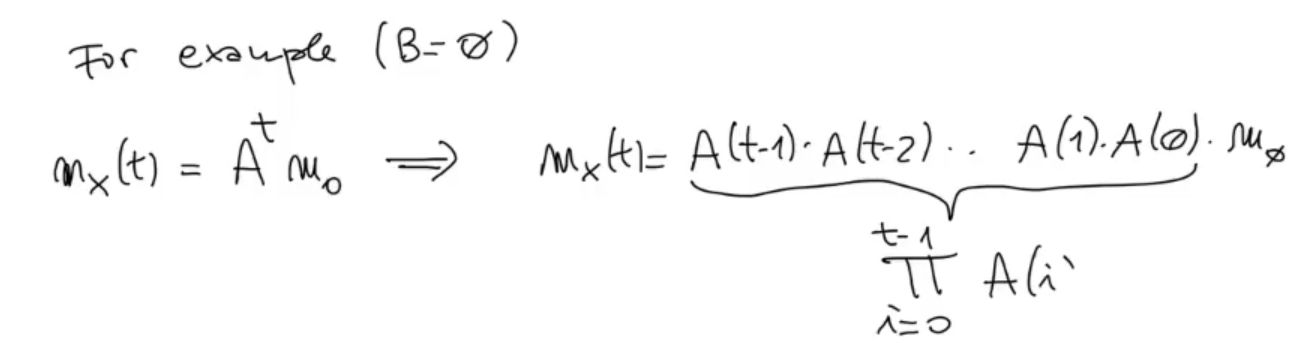 For example (B=∅)
m_x(t) = A^t m_0 ⟹ m_x(t)= A(t-1)·A(t-2)·.. A(1).A(∅). m_∅
t-1
∏ A(i)
i=0